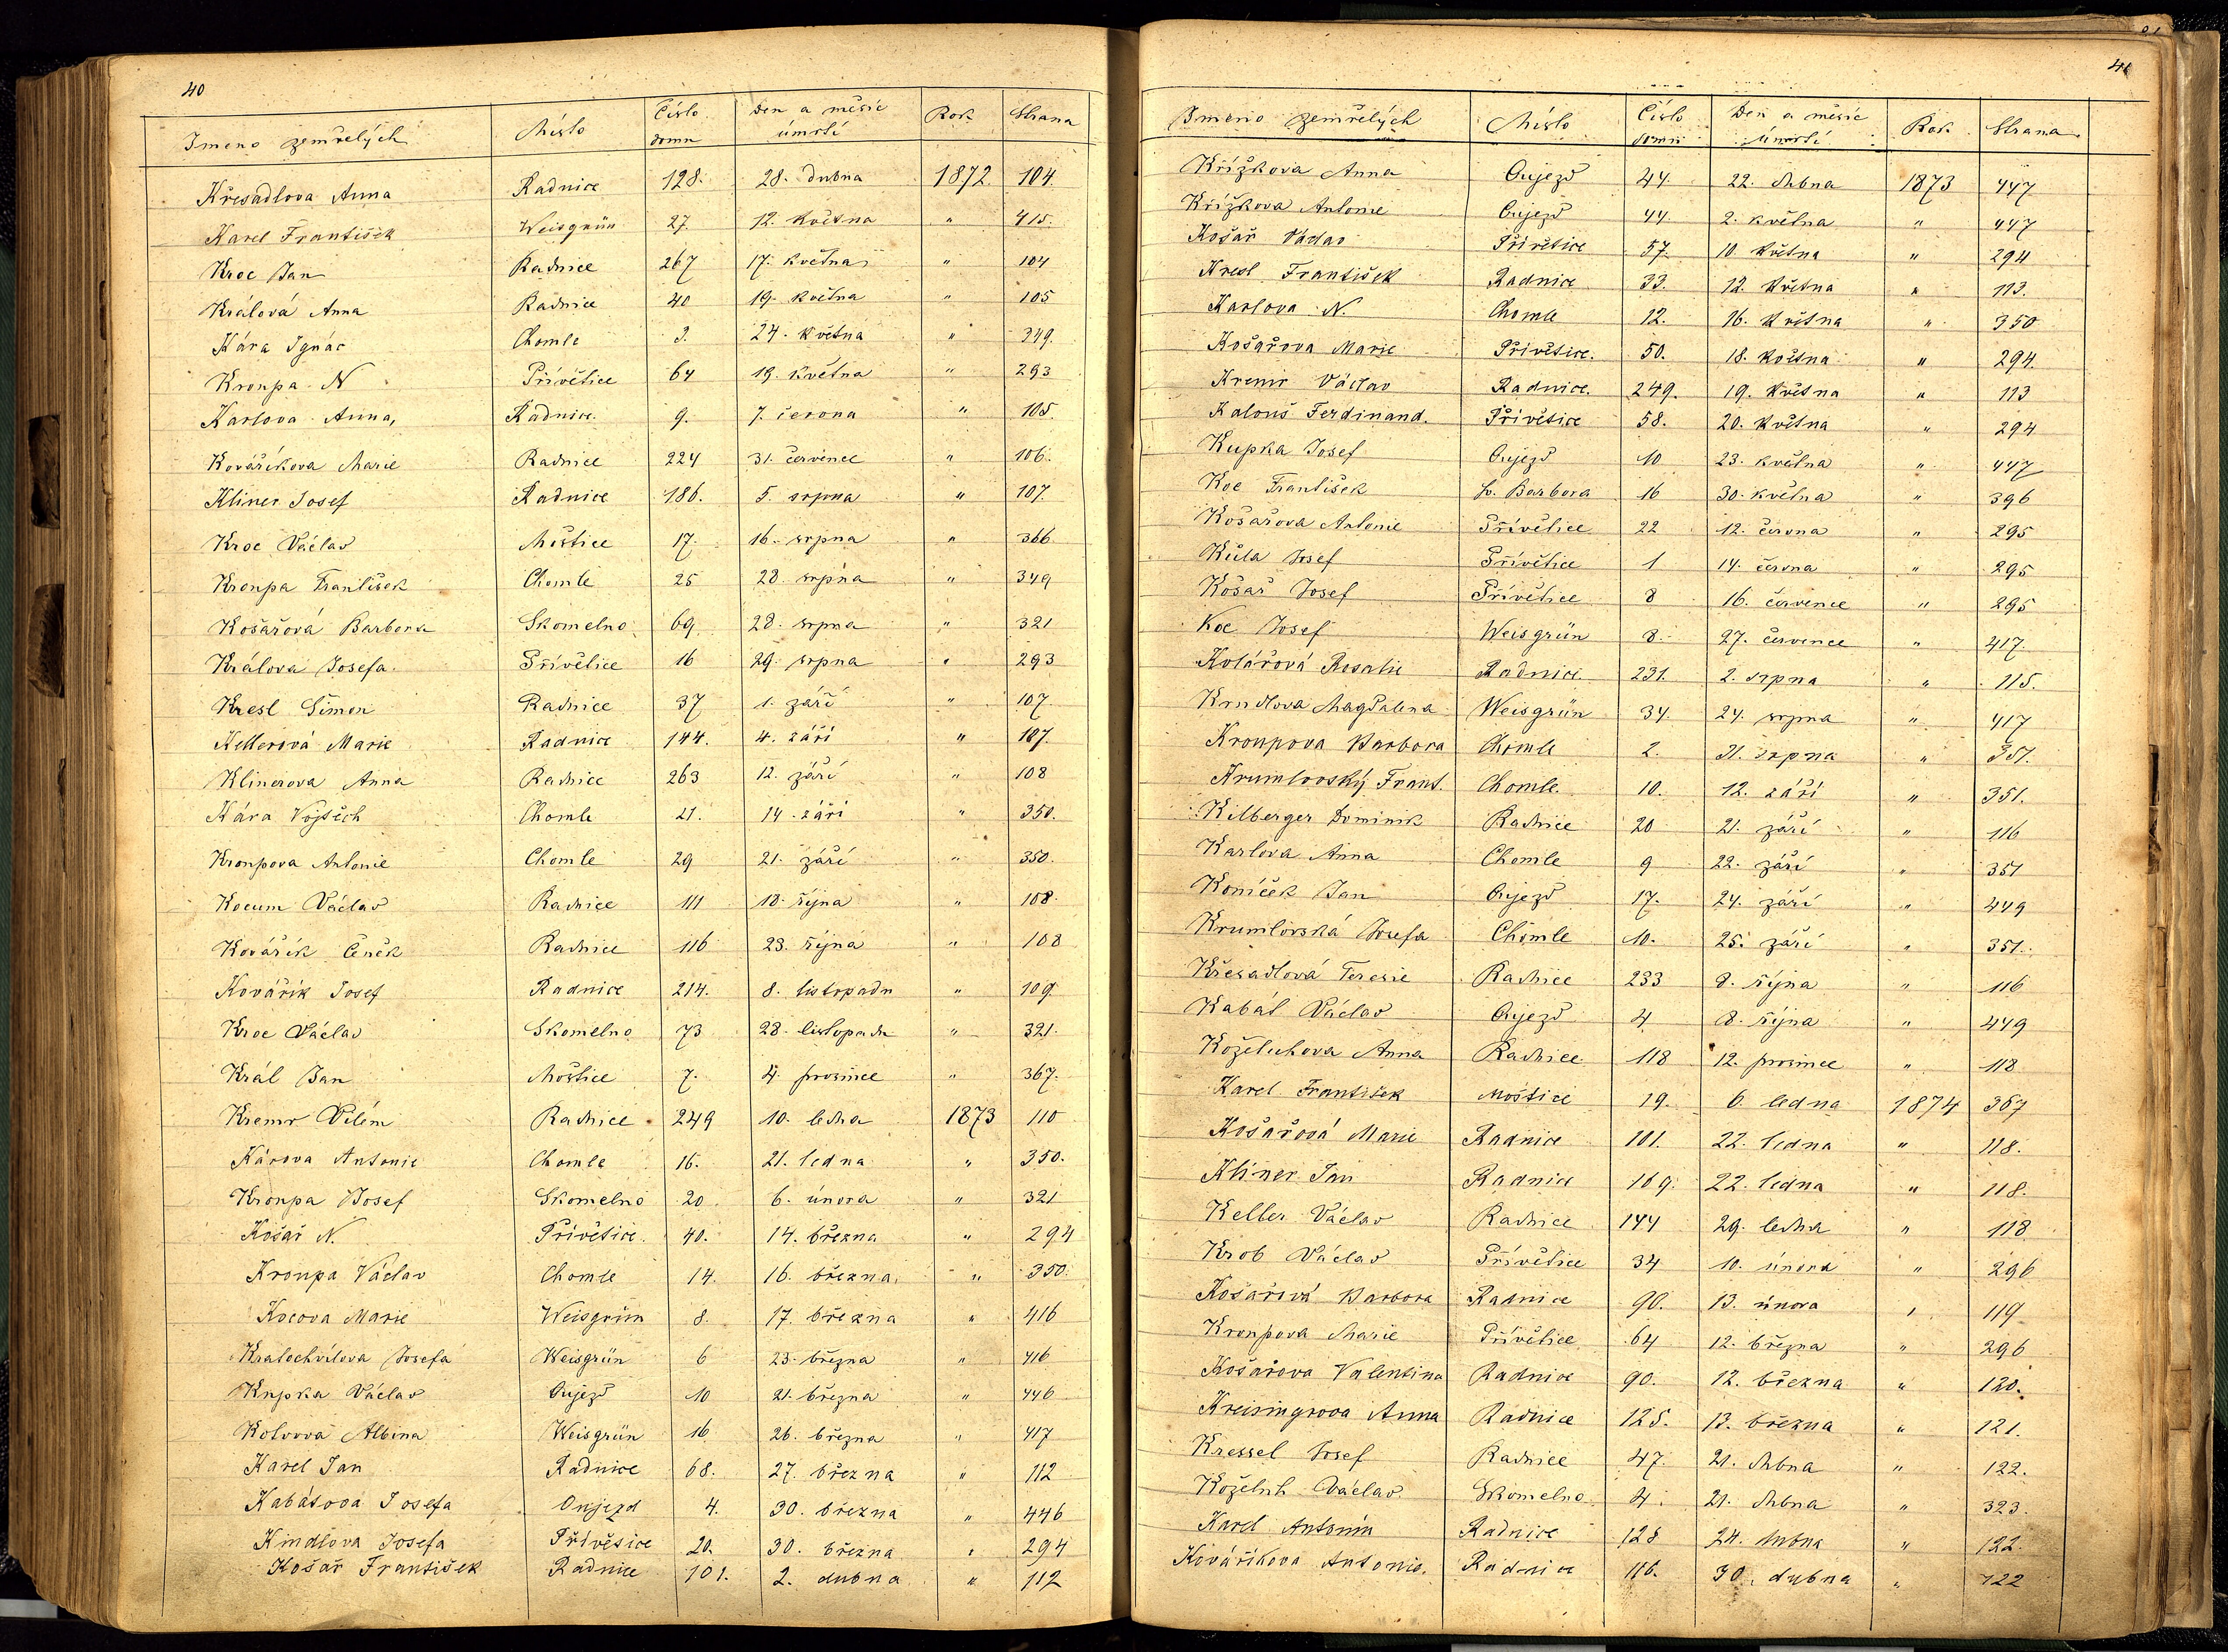 40
Jmeno zemřelých Místo Číslo domu Den a měsíc úmrtí Rok Strana
Křesadlova Anna Radnice 128. 28. dubna 1872. 104.
Karel František Weisgrün 27. 12. května " 415.
Kroc Jan Radnice 267 17. května " 104
Králová Anna Radnice 40 19. května " 105
Kára Ignác Chomle 3. 24. května " 349.
Kroupa N Přívětice 64 19. května " 293
Karlova Anna, Radnice. 9. 7. června " 105.
Kovářikova Marie Radnice 224 31. července " 106.
Kliner Josef Radnice 186. 5. srpna " 107.
Kroc Václav Moštice 17. 16. srpna " 366
Kroupa František Chomle 25 28. srpna " 349
Košařová Barbora Skomelno 69 28. srpna " 321
Králova Josefa. Přívětice 16 29. srpna " 293
Kresl Šimon Radnice 37 1. září " 107.
Kellerová Marie Radnice 144. 4. září " 107.
Klinerova Anna Radnice 263 12. září " 108
Kára Vojtěch Chomle 21. 14. září " 350.
Kroupova Antonie Chomle 29 21. září " 350.
Kocum Václav Radnice 111 18. října " 108.
Kovářík Čeněk Radnice 116 23. října " 108
Kovářík Josef Radnice 214. 8. listopadu " 109.
Kroc Václav Skomelno 73 28. listopadu " 321.
Král Jan Moštice 7. 4. prosince " 367.
Kremr Vilém Radnice 249 10. ledna 1873 110
Károva Antonie Chomle 16. 21. ledna " 350.
Kroupa Josef Skomelno 20 6. února " 321
Košař N. Přívětice. 40. 14. března " 294
Kroupa Václav Chomle 14. 16. března, " 350.
Kocova Marie Weisgrün 8. 17. března " 416
Kratochvílova Josefa Weisgrün 6 23. března " 416
Kupka Václav Oujezd 10 21. března " 446
Kolvova Albina Weisgrün 16 26. března " 417
Karel Jan Radnice 68. 27. března " 112
Kabátova Josefa Oujezd 4. 30. března " 446
Kindlova Josefa Přívětice 20. 30. března " 294
Košař František Radnice 101. 2. dubna " 112
41
Jmeno zemřelých Místo Číslo domu Den a měsíc úmrtí Rok Strana
Křížkova Anna Oujezd 44. 22. dubna 1873 447
Křížkova Antonie Oujezd 44. 2. května " 447
Košař Václav Přívětice 57. 10. května " 294
Kresl František Radnice 33. 12. května " 113.
Karlova N. Chomle 12. 16. května " 350
Košařova Marie Přívětice. 50. 18. května " 294.
Kremr Václav Radnice. 249. 19. května " 113
Kalouš Ferdinand. Přívětice 58. 20. května " 294
Kupka Josef Oujezd 10 23. května " 447
Koc František Sv. Barbora 16 30. května " 396
Košařova Antonie Přívětice 22 12. června " 295
Kůla Josef Přívětice 1 14. června " 295
Košař Josef Přívětice 8 16. července " 295
Koc Josef Weisgrün 8. 27. července " 417.
Kolářová Rosalie Radnice 231. 2. srpna " 115.
Krndlova Magdalena Weisgrün 34. 24. srpna " 417
Kroupova Barbora Chomle 2. 31. srpna " 351.
Krumlovský Frant. Chomle. 10. 12. září " 351.
Kilberger Dominik Radnice 20 21. září " 116
Karlova Anna Chomle 9 22. září " 351
Koníček Jan Oujezd 17. 24. září " 449
Krumlovská Josefa Chomle 10. 25. září " 351.
Křesadlová Teresie Radnice 233 8. října " 116
Kabát Václav Oujezd 4 8. října " 449
Koželuhova Anna Radnice 118 12. prosince " 118
Karel František Moštice 19. 6. ledna 1874 367
Košařová Marie Radnice 101. 22. ledna " 118.
Kliner Jan Radnice 109. 22. ledna " 118.
Keller Václav Radnice 144 29. ledna " 118
Krob Václav Přívětice 34 10. února " 296
Košařová Barbora Radnice 90. 13. února " 119
Kroupova Marie Přívětice 64 12. března " 296
Košařova Valentina Radnice 90. 12. března " 120.
Kreisingrova Anna Radnice 125. 13. března " 121.
Kressel Josef Radnice 47. 21. dubna " 122.
Koželuh Václav Skomelno 4. 21. dubna " 323.
Karel Antonín Radnice 128 24. dubna " 122.
Kovářikova Antonie. Radnice 116. 30. dubna " 122